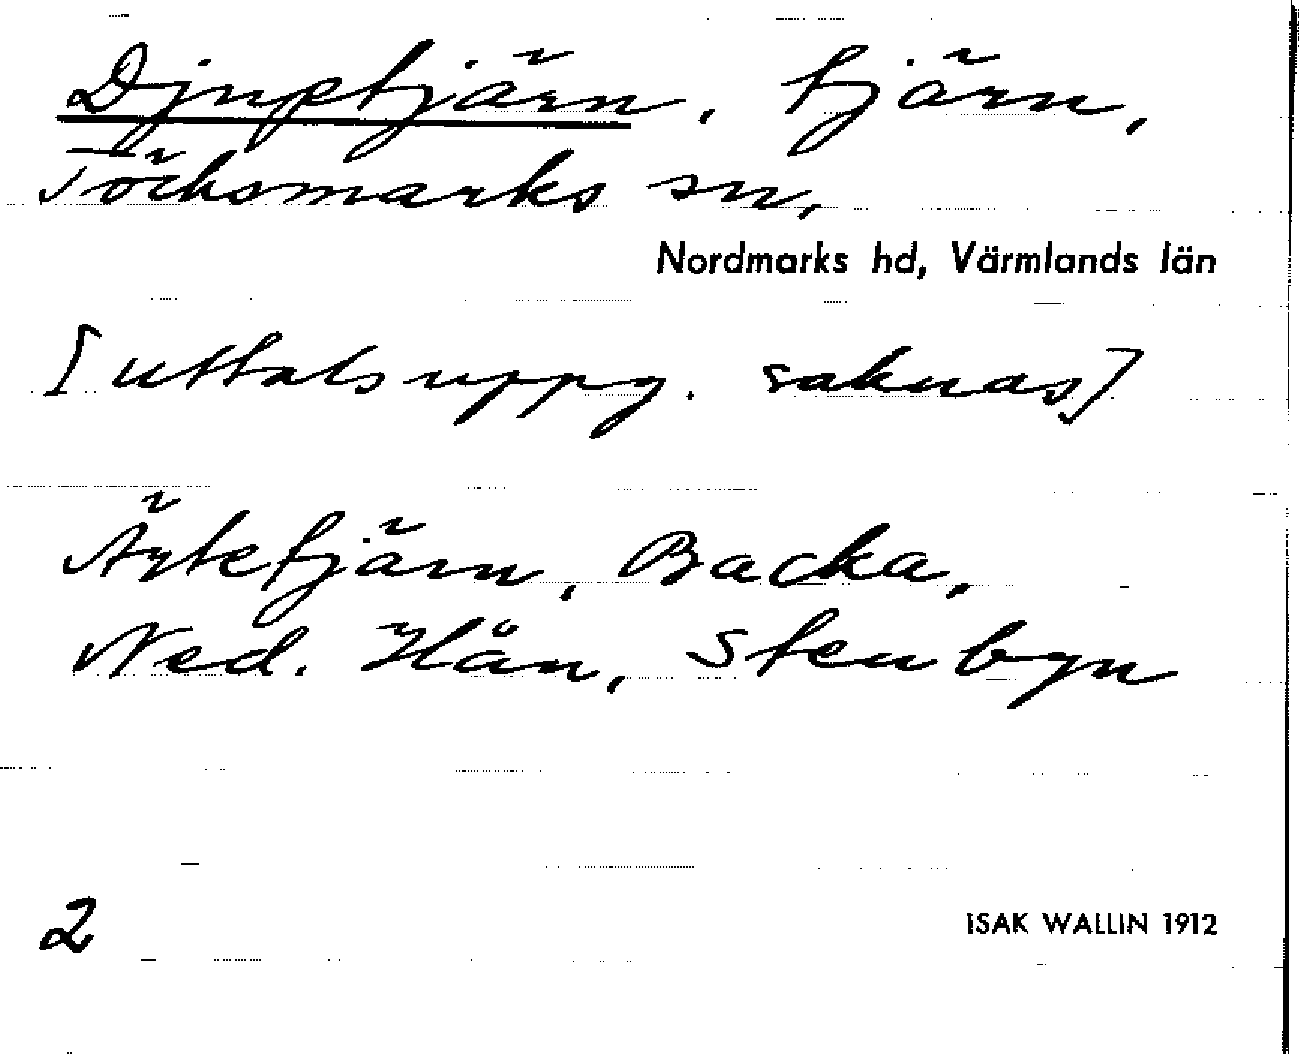 Djuptjärn, tjärn,
Töcksmarks sn,
Nordmarks hd, Värmlands län
[uttalsuppg. saknas]
Ärtetjärn, Backa,
Ned. Hån, Stenbyn
2
ISAK WALLIN 1912